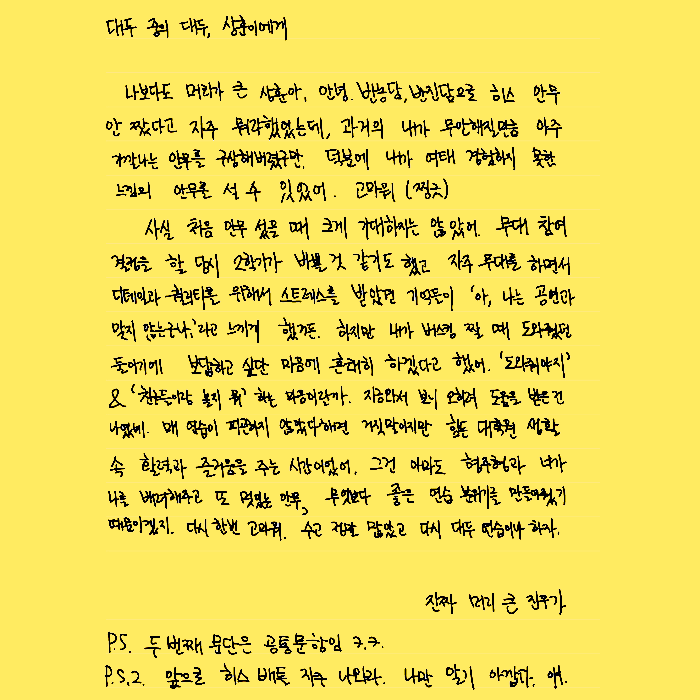 대두 중의 대두, 상훈이에게
나보다도 머리가 큰 상훈아, 안녕. 반농담, 반진담으로 히스 안무
안 짰다고 자주 뭐라했었는데, 과거의 내가 무안해질만큼 아주
기깔나는 안무를 구상해버렸구만. 덕분에 내가 여태 경험하지 못한
느낌의 안무를 설 수 있었어. 고마워 (찡긋)
사실 처음 안무 섰을 때 크게 기대하지는 않았어. 무대 참여
결정을 할 당시 2학기가 바쁠 것 같기도 했고 자주 무대를 하면서
디테일과 퀄리티를 위해서 스트레스를 받았던 기억들이 '아, 나는 공연과
맞지 않는구나.'라고 느끼게 했거든. 하지만 내가 버스킹 짤 때 도와줬던
동아기에 보답하고 싶단 마음에 흔쾌히 하겠다고 했어. '도와줘야지'
& '친구들이랑 놀지 뭐' 하는 마음이랄까. 지금와서 보니 오히려 도움을 받은건
나였네. 매 연습이 피곤하지 않았다 해면 거짓말이지만 힘든 대학원 생활
속 활력과 즐거움을 주는 시간이었어. 그건 아마도 형주형과 너가
나를 배려해주고 또 멋있는 안무, 무엇보다 좋은 연습 분위기를 만들어줬기
때문이겠지. 다시 한번 고마워. 수고 정말 많았고 다시 대두 연습이나 하자.
진짜 머리 큰 진우가
P.S. 두번째 문단은 공통문항임 ㅋ.ㅋ.
P.S.2. 앞으로 히스 배틀 자주 나와라. 나만 알기 아깝다. 얘.